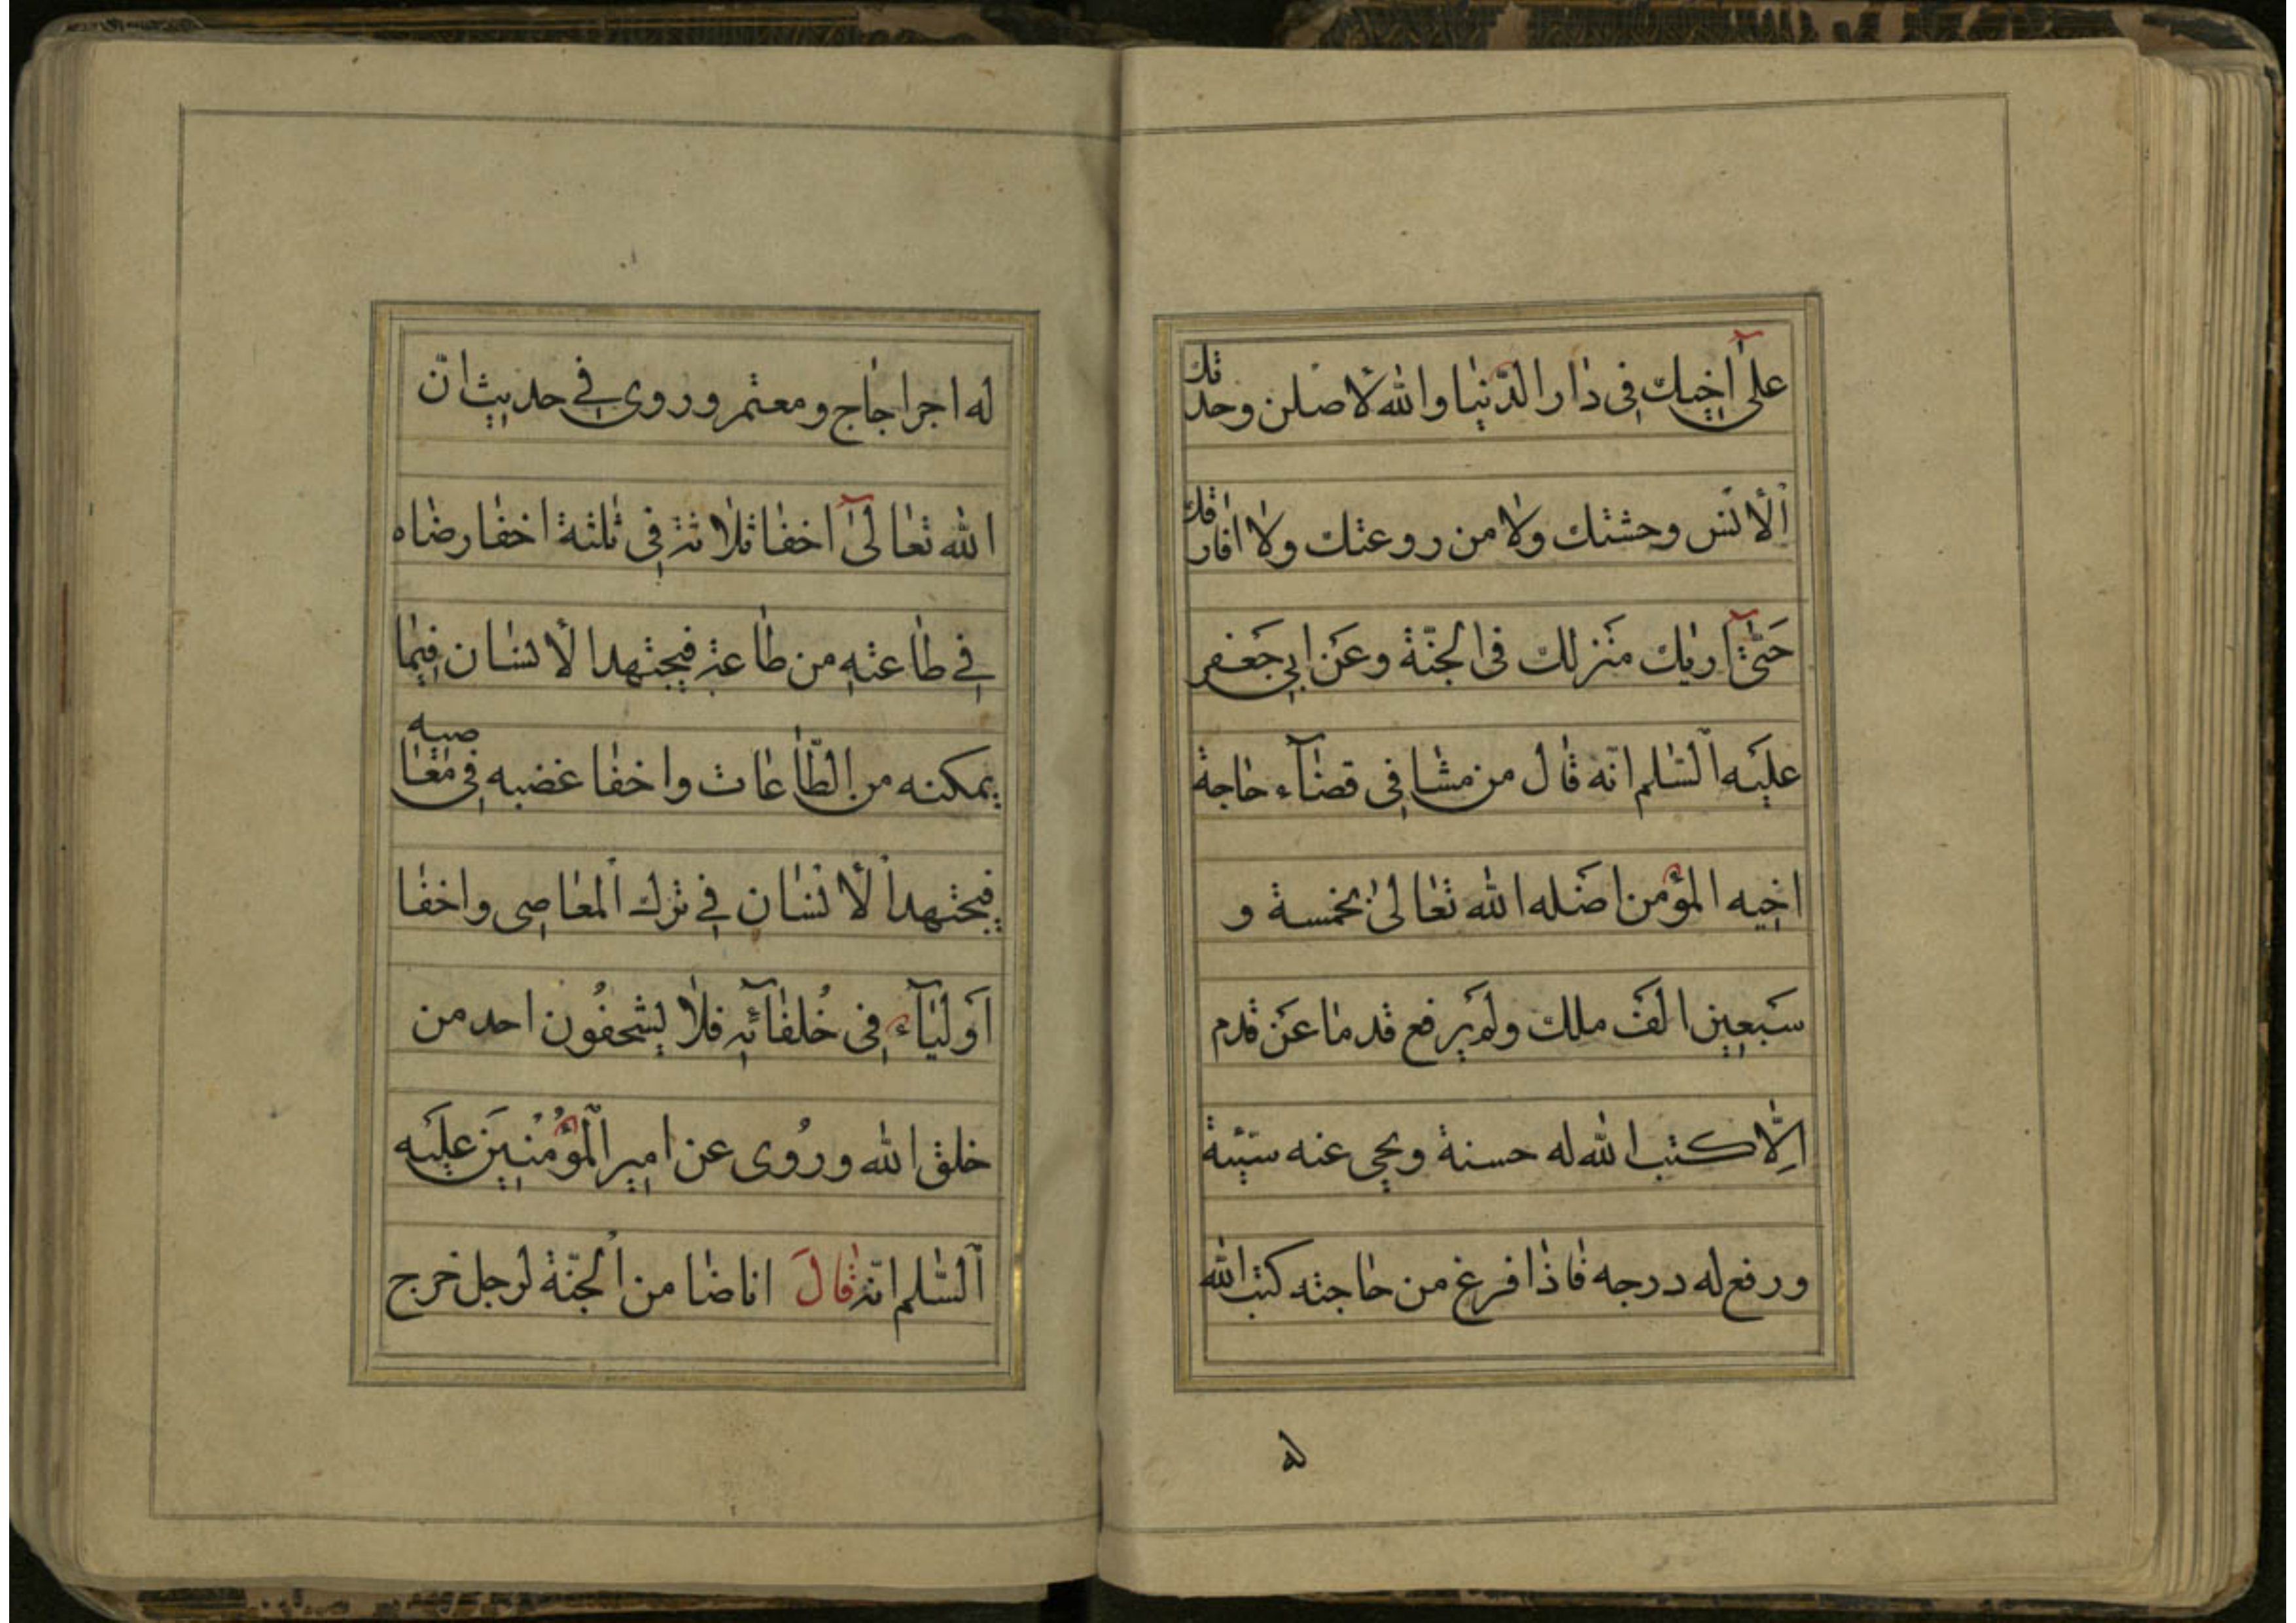 على اخيك فى دار الدّنيا والله لاصلن وحدتك
الأنس وحشتك ولامن روعتك ولا افارقك
حَتّى اريك مَنزلك فى الجنّة وعَن ابى جَعفر
عليَه السّلم انّه قال من مشا فى قضآء حاجة
اخيه المؤمن اضَله الله تعالى بخمسة و
سَبعين الَف ملك ولَم يَرفع قدما عَن قدم
الّا كتب الله له حسنة ويحى عنه سيّئة
ورفع له درجه فاذا فرغ من حاجته كتب الله
له
له اجر اجاج ومعتمر وروى فى حديث انّ
الله تعالى اخفا ثلاثة فى ثلثة اخفا رضاه
فى طاعته من طاعته فيجتهد الأنسان فيما
يمكنه من الطّاعات واخفا غضبه فى معاصيه
فيجتهد الأنسان فى ترك المعاصى واخفا
اَوليآء فى خُلفآئه فلا يستحفُون احد من
خلق الله ورُوى عن امير المؤمُنيَن عليَه
السّلم انّه قالَ اناضا من الجنّة لرجل خرج